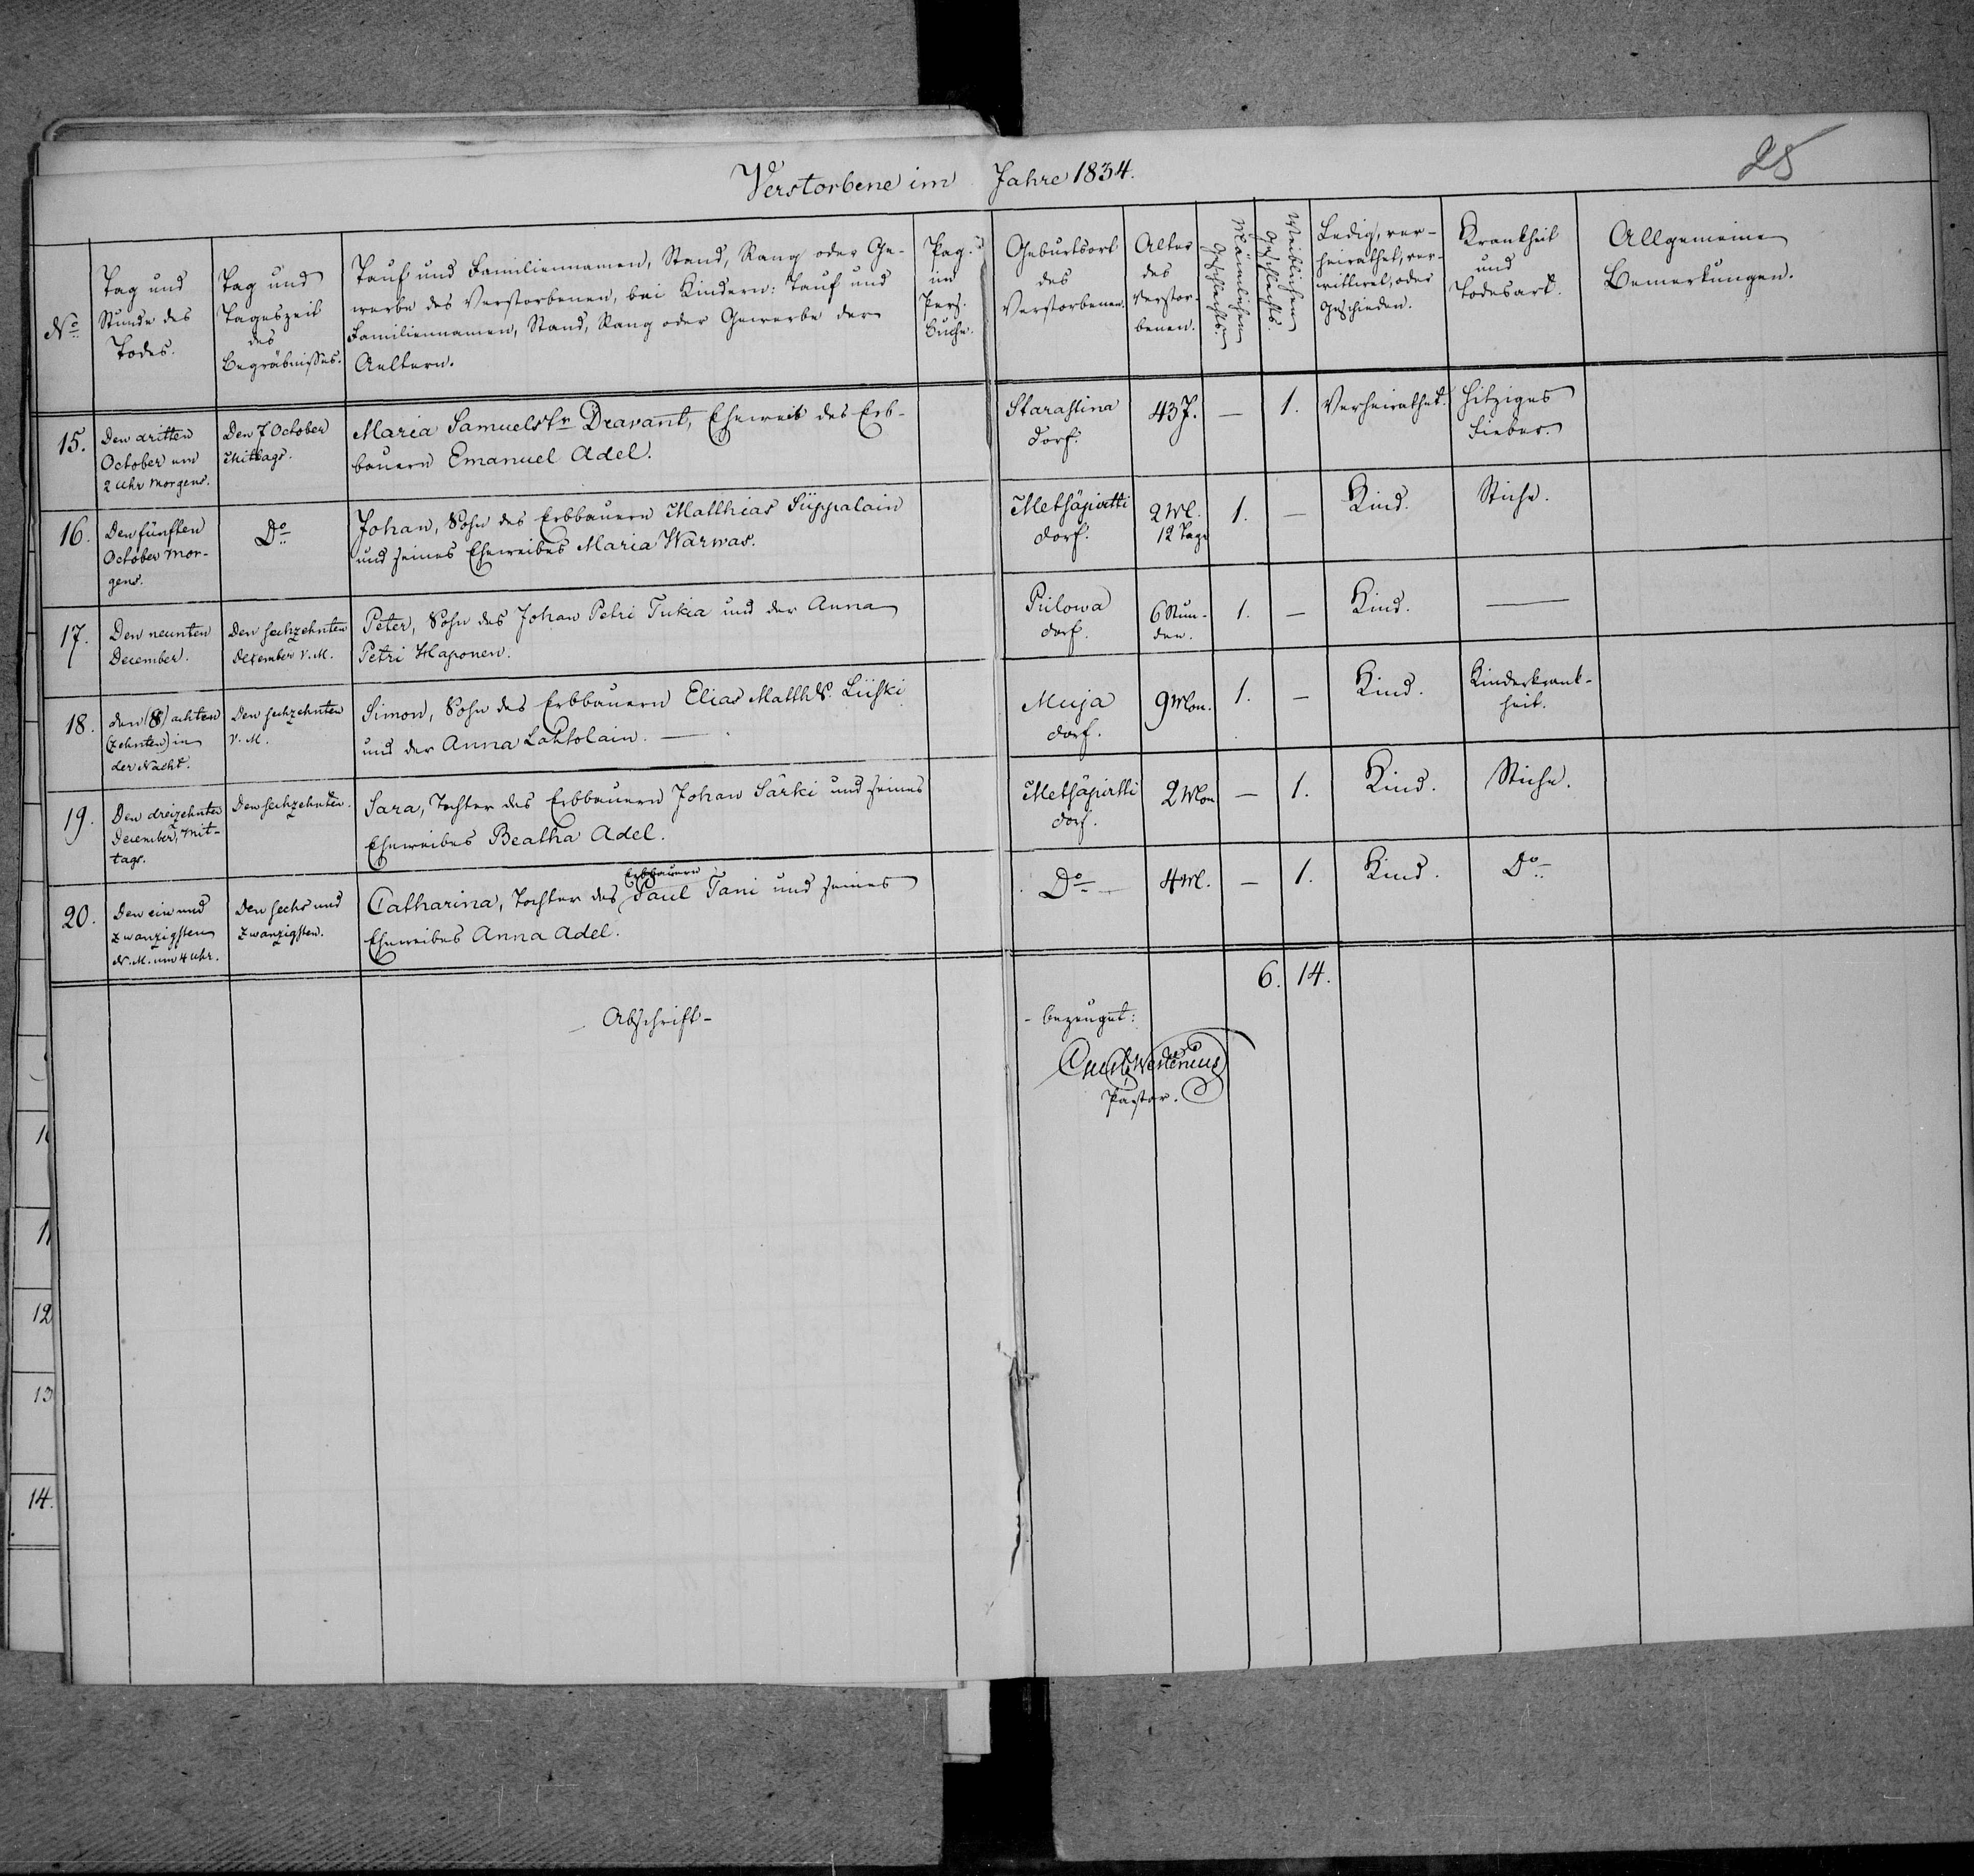 25
Verstorbene im Jahre 1834.
No
Tag und
Stunde des
Todes.
Tag und
Tageszeit
des
Begräbnisses.
Tauf und Familiennamen, Stand, Rang oder Ge-
werbe des Verstorbenen, bei Kindern: Tauf und
Familiennamen, Stand, Rang oder Gewerbe der
Aeltern.
Pag.
im
Pers.
Buche.
Geburtsort
des
Verstorbenen.
Alter
des
Verstor-
benen.
Männlichen
Geschlechts.
Weiblichen
Geschlechts.
Ledig, ver-
heirathet, ver-
wittwet, oder
Geschieden.
Krankheit
und
Todesart.
Allgemeine
Bemerkungen.
15.
Den dritten
October um
2 Uhr Morgens.
Den 7 October
Mittags.
Maria Samuelstr Dravant, Eheweib des Erb-
bauern Emanuel Adel.
Starastina
dorf.
43 J.
—
1.
Verheirathet.
Hitziges
Fieber.
16.
Den fünften
October Mor-
gens.
Do
Johan, Sohn des Erbbauern Matthias Süppalain
und seines Eheweibes Maria Warwas.
Metsäpirtti
dorf.
2 M.
12 Tage
1.
—
Kind.
Stiche.
17.
Den neunten
December.
Den sechzehnten
Dezember V. M.
Peter, Sohn des Johan Petri Tukia und der Anna
Petri Haponen.
Pülowa
dorf.
6 Stun-
den.
1.
—
Kind.
—
18.
den (8) achten
(zehnten) in
der Nacht.
Den sechzehnten
V. M.
Simon, Sohn des Erbbauern Elias Matthds. Liiski
und der Anna Lahtolain. —
Muja
dorf.
9 Mon.
1.
—
Kind.
Kinderkrank-
heit.
19.
Den dreizehnten
December, Mit-
tags.
Den sechzehnten.
Sara, Tochter des Erbbauern Johan Särki und seines
Eheweibes Beatha Adel.
Metsäpirtti
dorf.
2 Mon
—
1.
Kind.
Stiche.
20.
Den ein und
zwanzigsten
N. M. um 4 Uhr.
Den sechs und
zwanzigsten.
Erbbauern
Catharina, Tochter des Paul Tani und seines
Eheweibes Anna Adel.
Do
4 M.
—
1.
Kind.
Do
6. 14.
Abschrift-
- bezeugt:
Pastor.
10
11
12
13
14.